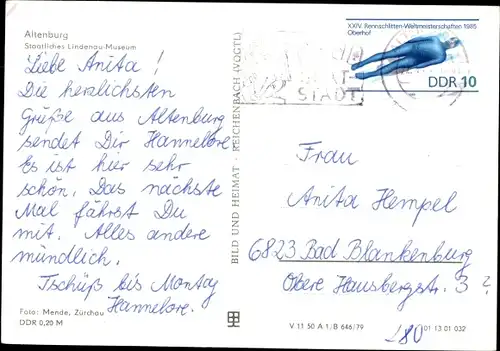 Altenburg
Staatliches Lindenau-Museum
Liebe Anita!
Die herzlichsten
Grüße aus Altenburg
sendet Dir Hannelore.
Es ist hier sehr
schön. Das nächste
Mal fährst Du
mit. Alles andere
mündlich.
Tschüß bis Montag
Hannelore.
Foto: Mende, Zürchau
DDR 0,20 M
BILD UND HEIMAT · REICHENBACH (VOGTL)
STADT
XXIV. Rennschlitten-Weltmeisterschaften 1985
Oberhof
DDR 10
Frau
Anita Hempel
6823 Bad Blankenburg
Obere Hausbergstr. 3 ?
V 11 50 A 1/B 646/79
01 13 01 032